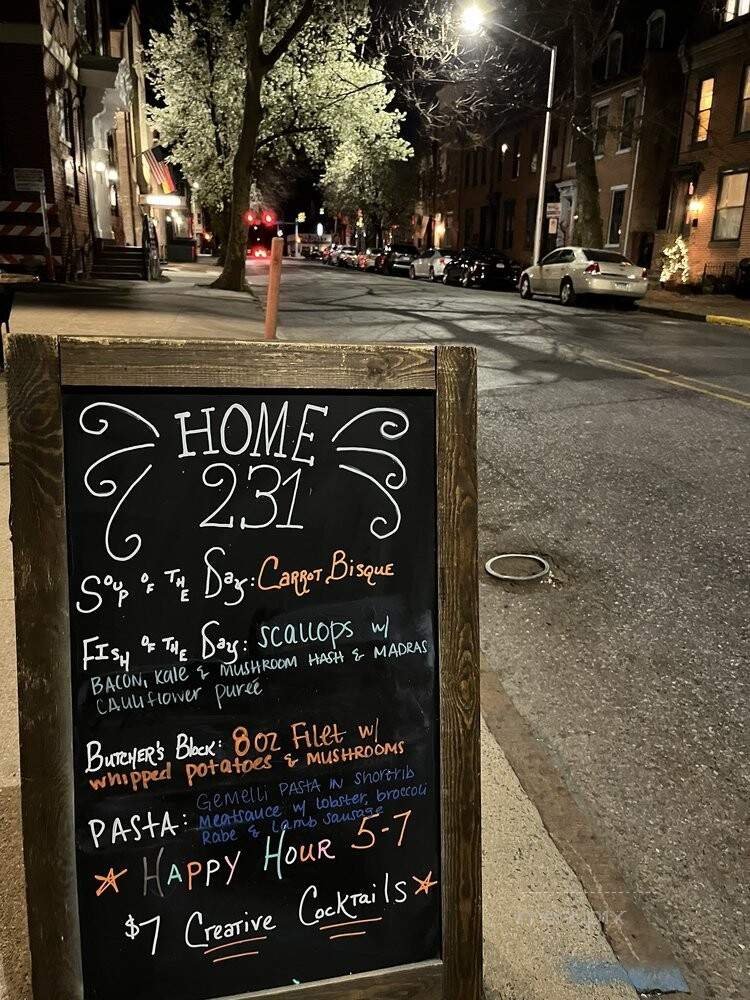 HOME
231
Soup OF THE Day: Carrot Bisque
FISH OF THE Day: scallops w/
BACON, Kale & MUSHROOM HASH & MADRAS
Cauliflower pureé
Butcher's Block: 8oz Filet w/
whipped potatoes & MUSHROOMS
PASTA: Gemelli PASTA IN Shortrib
Meatsauce w/ lobster, broccoli
Rabe & lamb sausage
Happy Hour 5-7
$7 Creative Cocktails